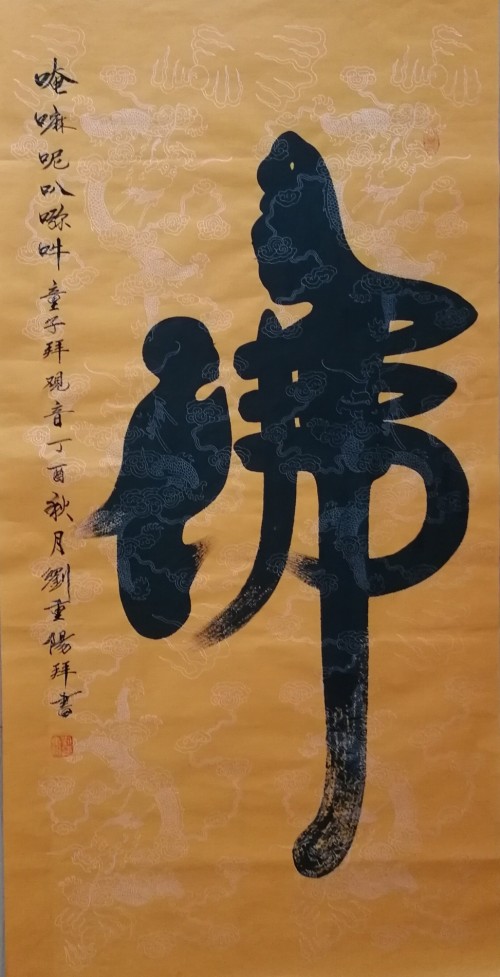 佛
唵嘛呢叭㖿吽童子拜观音丁酉秋月劉重陽拜書